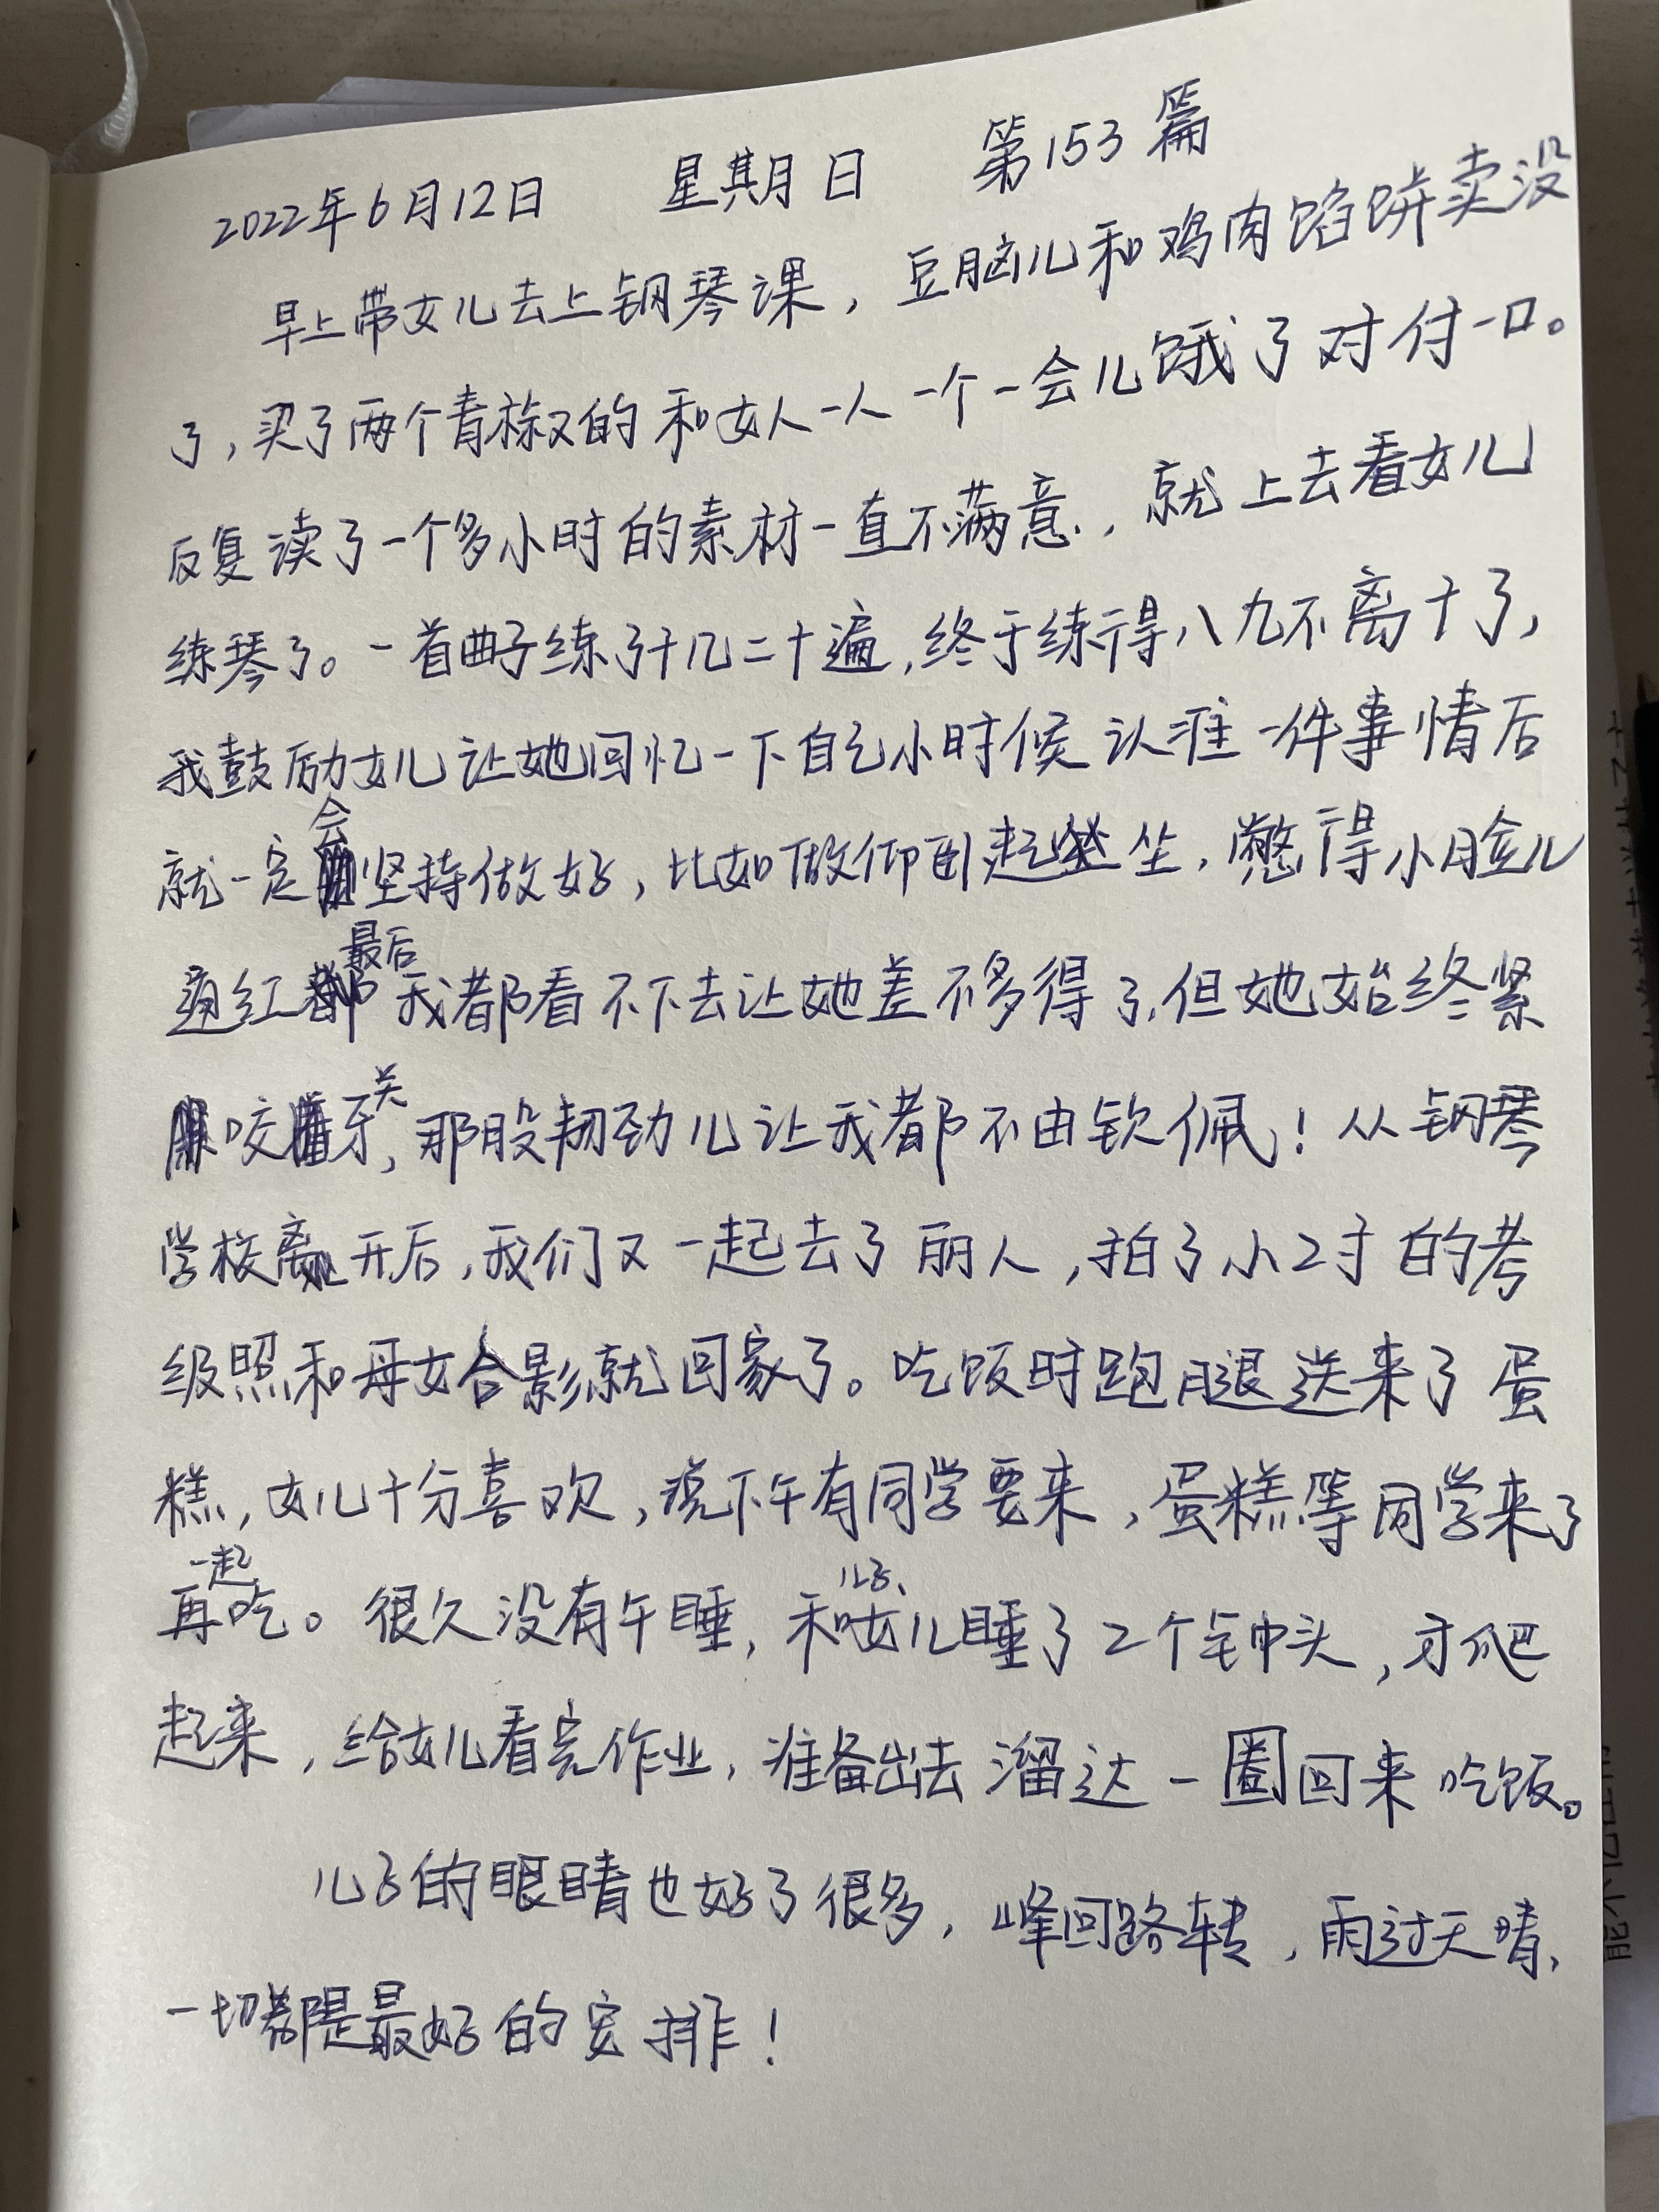 2022年6月12日 星期日 第153篇
早上带女儿去上钢琴课，豆腐脑儿和鸡肉馅饼卖没
了，买了两个青椒的和女人一人一个一会儿饿了对付一口。
反复读了一个多小时的素材一直不满意，就上去看女儿
练琴了。一首曲子练了十几二十遍，终于练得八九不离十了，
我鼓励女儿让她回忆一下自己小时候认准一件事情后
就一定会坚持做好，比如做仰卧起坐，憋得小脸儿
通红最后我都看不下去让她差不多得了，但她始终紧
咬牙关，那股韧劲儿让我都不由钦佩！从钢琴
学校离开后，我们又一起去了丽人，拍了小2寸的考
级照和母女合影就回家了。吃饭时跑腿送来了蛋
糕，女儿十分喜欢，说下午有同学要来，蛋糕等同学来了
再一起吃。很久没有午睡，和儿子、女儿睡了2个钟头，才爬
起来，给女儿看完作业，准备出去溜达一圈回来吃饭。
儿子的眼睛也好了很多，峰回路转，雨过天晴，
一切都是最好的安排！